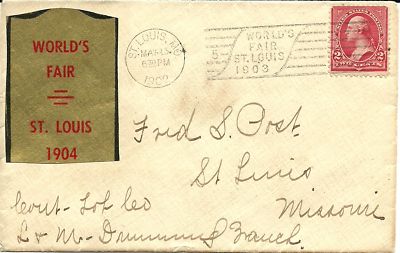 WORLD'S
FAIR
ST. LOUIS
1904
ST. LOUIS, MO.
6 30 PM
1902
5
WORLD'S
FAIR
ST. LOUIS
1903
2 2
TWO CENTS
Fred S. Post
St Louis
Missouri
Cout- Lob Co
L & M- Drumming Branch.